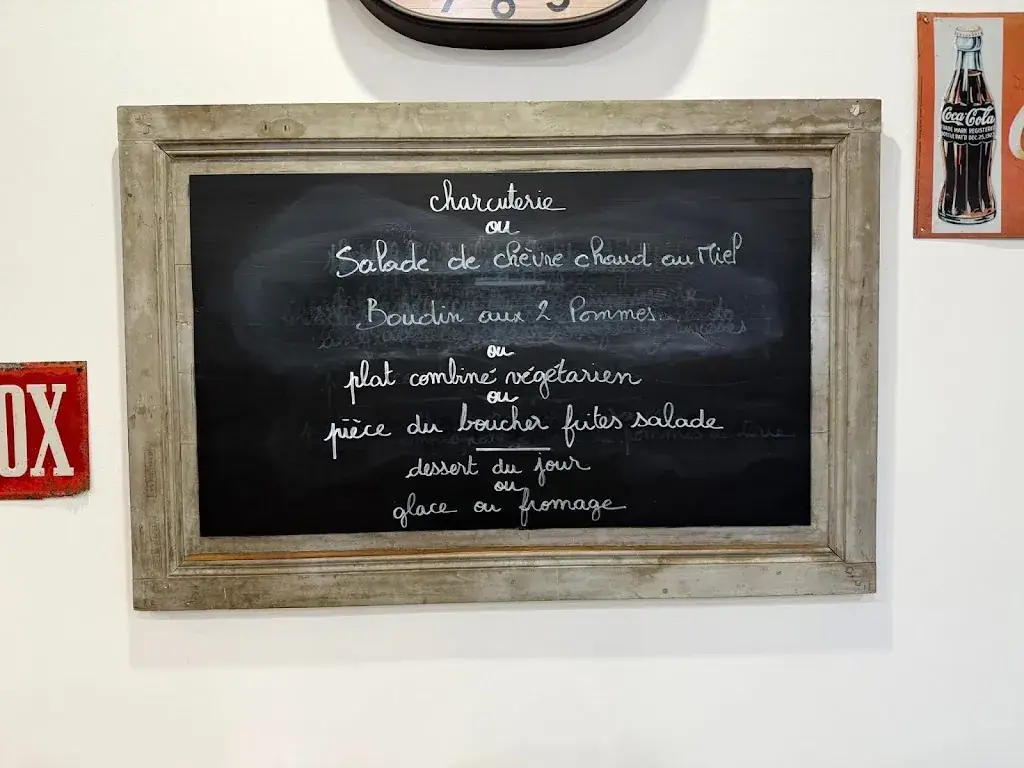 7 6 5
charcuterie
ou
Salade de chèvre chaud au Miel
Boudin aux 2 Pommes
ou
plat combiné végétarien
ou
pièce du boucher frites salade
dessert du jour
ou
glace ou fromage
OX
Coca-Cola
TRADE MARK REGISTERED
BOTTLE PAT'D DEC. 25, 1923